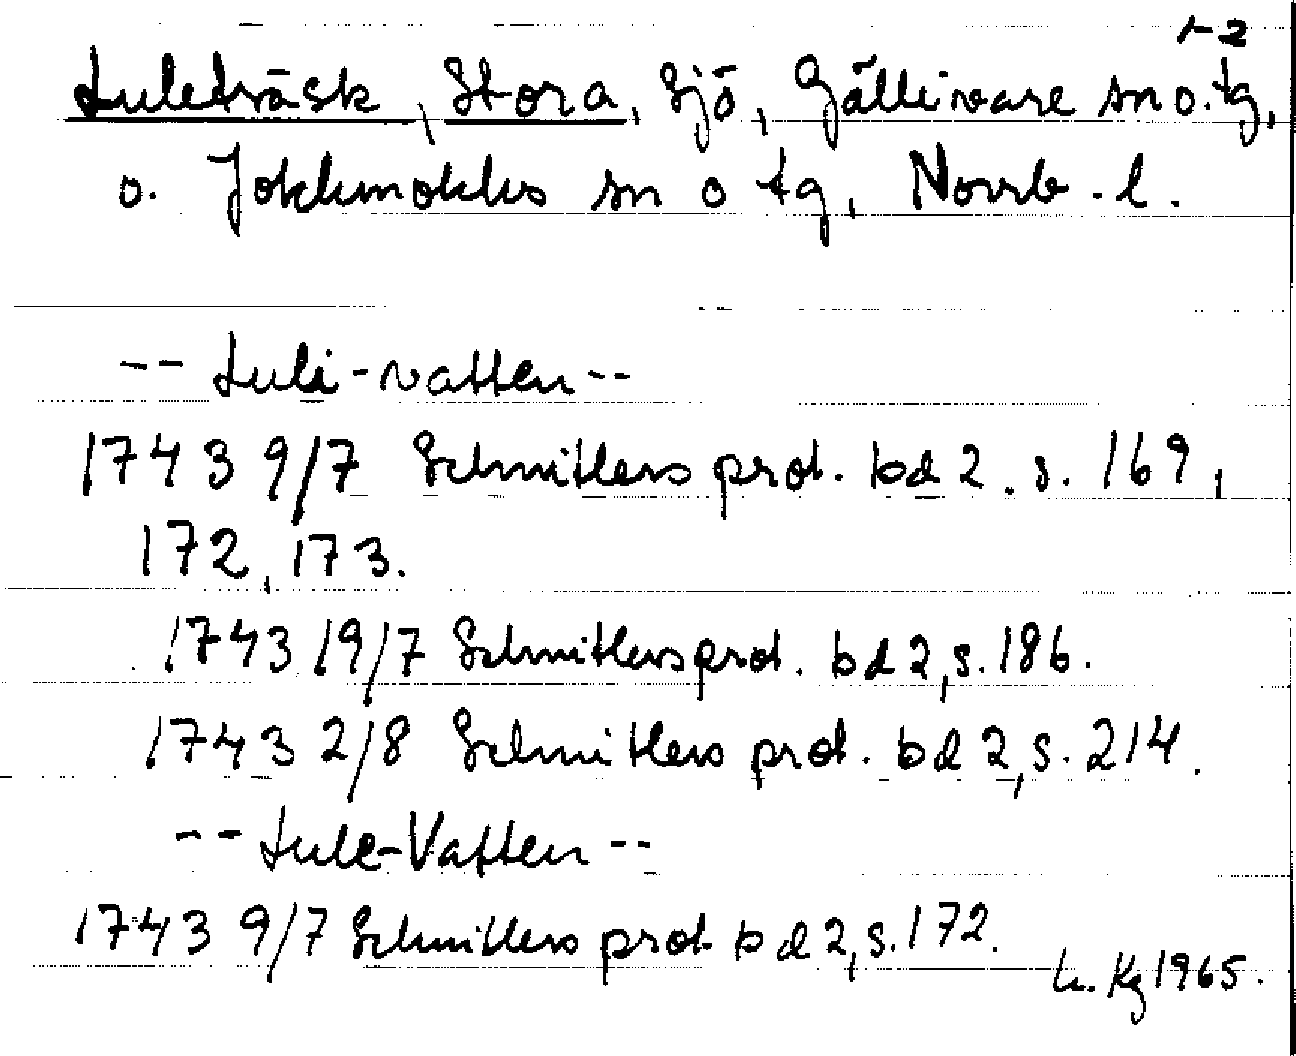 1-2
Luleträsk, Stora, sjö, Gällivare sn o. tg,
o. Jokkmokks sn o tg, Norrb. l.
-- Luli-vatten --
1743 9/7 Schnitlers prot. bd 2. s. 169,
172, 173.
1743 19/7 Schnitlers prot. bd 2, s. 186.
1743 2/8 Schnitlers prot. bd 2, s. 214.
-- Lule-Vatten --
1743 9/7 Schnitlers prot. bd 2, s. 172.
L. Kg 1965.